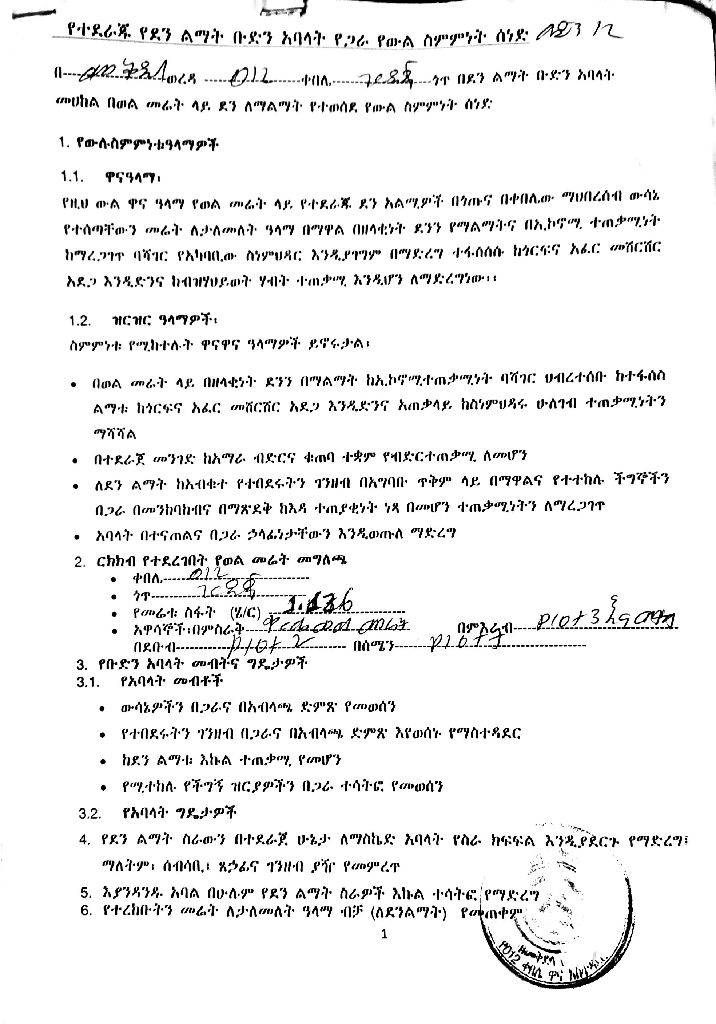 የተደራጁ የደን ልማት ቡድን አባላት የጋራ የውል ስምምነት ሰነድ
በ---- ወረዳ ---- 012 ---ቀበሌ---- ---- ጎጥ በደን ልማት ቡድን አባላት
መሀከል በወል መሬት ላይ ደን ለማልማት የተወሰደ የውል ስምምነት ሰነድ
1. የውሉስምምነቱዓላማዎች
1.1. ዋናዓላማ፡
የዚህ ውል ዋና ዓላማ የወል መሬት ላይ የተደራጁ ደን አልሚዎች በጎጡና በቀበሌው ማህበረሰብ ውሳኔ
የተሰጣቸውን መሬት ለታለመለት ዓላማ በማዋል በዘላቂነት ደንን የማልማትና በኢኮኖሚ ተጠቃሚነት
ከማረጋገጥ ባሻገር የአካባቢው ስነምህዳር እንዲያገግም በማድረግ ተፋሰሰሱ ከጎርፍና አፈር መሸርሸር
አደጋ እንዲድንና ከብዝሃህይወት ሃብት ተጠቃሚ እንዲሆን ለማድረግነው፡፡
1.2. ዝርዝር ዓላማዎች፡
ስምምነቱ የሚከተሉት ዋናዋና ዓላማዎች ይኖሩታል፡
• በወል መሬት ላይ በዘላቂነት ደንን በማልማት ከኢኮኖሚተጠቃሚነት ባሻገር ህብረተሰቡ ከተፋሰስ
ልማቱ ከጎርፍና አፈር መሸርሸር አደጋ እንዲድንና አጠቃላይ ከስነምህዳሩ ሁለገብ ተጠቃሚነትን
ማሻሻል
• በተደራጀ መንገድ ከአማራ ብድርና ቁጠባ ተቋም የብድርተጠቃሚ ለመሆን
• ለደን ልማት ከአብቁተ የተበደሩትን ገንዘብ በአግባቡ ጥቅም ላይ በማዋልና የተተከሉ ችግኞችን
በጋራ በመንከባከብና በማጽደቅ ከእዳ ተጠያቂነት ነጻ በመሆን ተጠቃሚነትን ለማረጋገጥ
• አባላት በተናጠልና በጋራ ኃላፊነታቸውን እንዲወጡለ ማድረግ
2. ርክክብ የተደረገበት የወል መሬት መግለጫ
• ቀበሌ---- 012 ----
• ጎጥ----
• የመሬቱ ስፋት (ሄ/ር) ----
• አዋሳኞች፡በምስራቅ---- በምእራብ---- plot 3
በደቡብ---- plot 2 ---- በሰሜን---- plot
3. የቡድን አባላት መብትና ግዴታዎች
3.1. የአባላት መብቶች
• ውሳኔዎችን በጋራና በአብላጫ ድምጽ የመወሰን
• የተበደሩትን ገንዘብ በጋራና በአብላጫ ድምጽ እየወሰኑ የማስተዳደር
• ከደን ልማቱ እኩል ተጠቃሚ የመሆን
• የሚተከሉ የችግኝ ዝርያዎችን በጋራ ተሳትፎ የመወሰን
3.2. የአባላት ግዴታዎች
4. የደን ልማት ስራውን በተደራጀ ሁኔታ ለማስኬድ አባላት የስራ ክፍፍል እንዲያደርጉ የማድረግ፤
ማለትም፡ ሰብሳቢ፡ ጸኃፊና ገንዘብ ያዥ የመምረጥ
5. እያንዳንዱ አባል በሁሉም የደን ልማት ስራዎች እኩል ተሳትፎ የማድረግ
6. የተረከቡትን መሬት ለታለመለት ዓላማ ብቻ (ለደንልማት) የመጠቀም
1